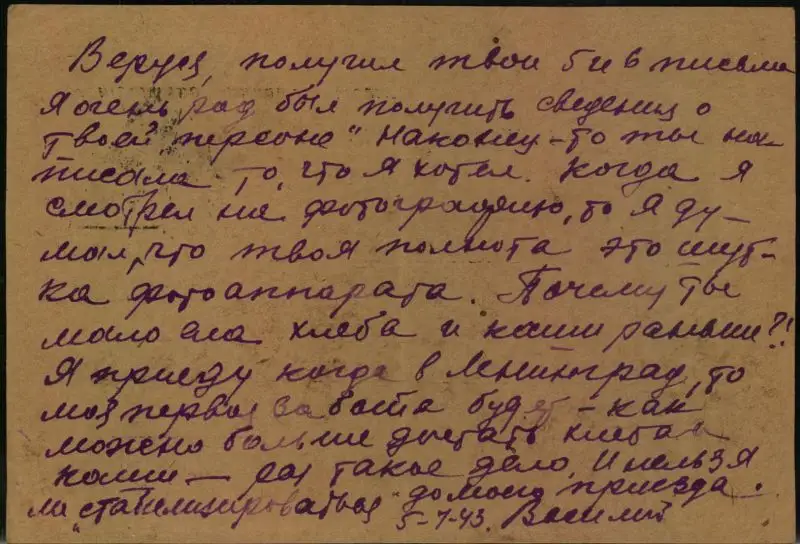 Веруся, получил твои 5 и 6 письма
Я очень рад был получить сведения о
твоей "персоне" Наконец-то ты на-
писала то, что я хотел. Когда я
смотрел на фотографию, то я ду-
мал, что твоя полнота это шут-
ка фотоаппарата. Почему ты
мало ела хлеба и каши раньше?!
Я приеду когда в Ленинград, то
моя первая забота будет - как
можно больше достать хлеба и
каши — раз такое дело. И нельзя
ли "стабилизироваться" до моего приезда.
5-1-43. Василий